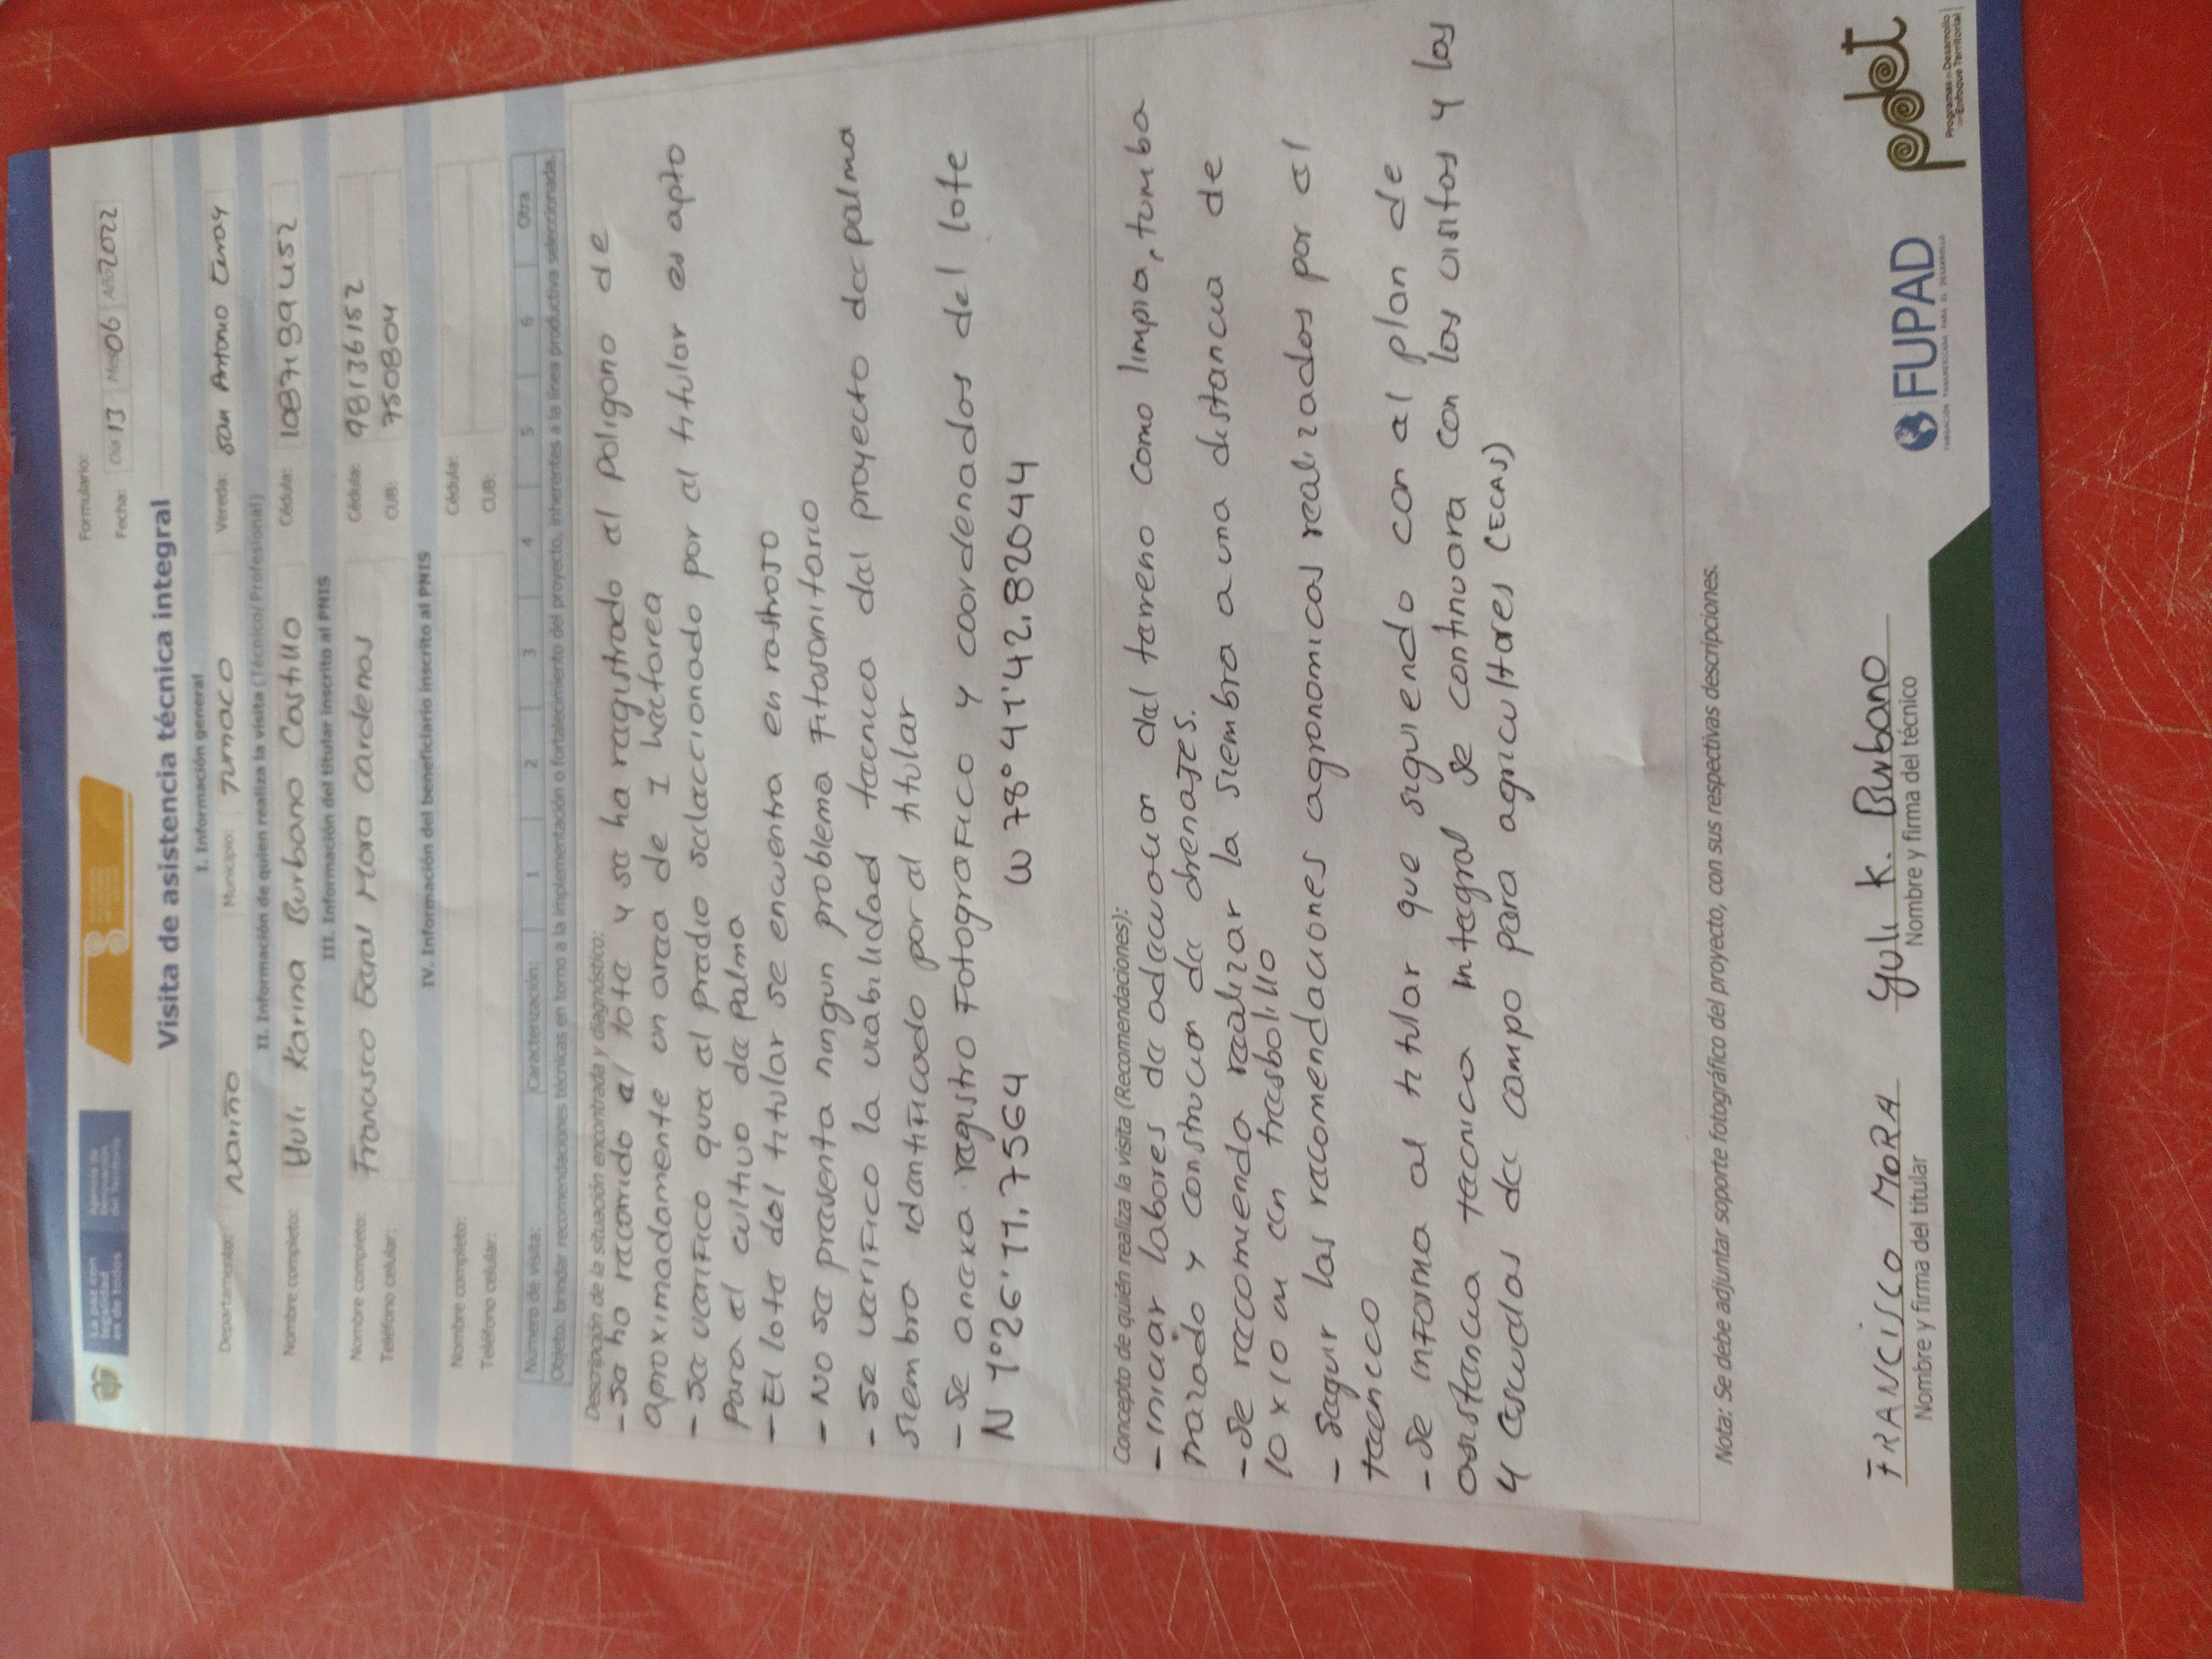 La paz con legalidad es de todos
Agencia de Renovación del Territorio
Formulario:
Fecha: Día 13 Mes 06 Año 2022
Visita de asistencia técnica integral
I. Información general
Departamento: Nariño Municipio: Tumaco Vereda: San Antonio Curay
II. Información de quien realiza la visita (Técnico/Profesional)
Nombre completo: Yuli Karina Burbano Castillo Cédula: 1087189452
III. Información del titular inscrito al PNIS
Nombre completo: Francisco Earal Mora Cardenas Cédula: 98136152
Teléfono celular: CUB: 750804
IV. Información del beneficiario inscrito al PNIS
Nombre completo: Cédula:
Teléfono celular: CUB:
Número de visita: Caracterización: 1 2 3 4 5 6 Otra
Objeto: brindar recomendaciones técnicas en torno a la implementación o fortalecimiento del proyecto, inherentes a la línea productiva seleccionada.
Descripción de la situación encontrada y diagnóstico:
- Se ha recorrido el lote y se ha registrado el poligono de
aproximadamente un area de 1 hectarea
- Se verifico que el predio seleccionado por el titular es apto
para el cultivo de palma
- El lote del titular se encuentra en rastrojo
- No se presenta ningun problema Fitosanitario
- Se verifico la viabilidad tecnica del proyecto de palma
siembra identificado por el titular
- Se anexa registro Fotografico y coordenados del lote
N 1°26'11.7564 W 78°41'42.82044
Concepto de quién realiza la visita (Recomendaciones):
- Iniciar labores de adecuacion del terreno como limpia, tumba
trazado y construcion de drenajes.
- Se recomienda realizar la siembra a una distancia de
10 x 10 m en tresbolillo
- Seguir las recomendaciones agronomicas realizados por el
tecnico
- Se informa al titular que siguiendo con el plan de
asistencia tecnica integral se continuara con los visitas y los
y escuelas de campo para agricultores (ECAS)
Nota: Se debe adjuntar soporte fotográfico del proyecto, con sus respectivas descripciones.
FRANCISCO MORA Yuli K. Burbano
Nombre y firma del titular Nombre y firma del técnico
FUPAD
FUNDACIÓN PANAMERICANA PARA EL DESARROLLO
pdet
Programas de Desarrollo
con Enfoque Territorial